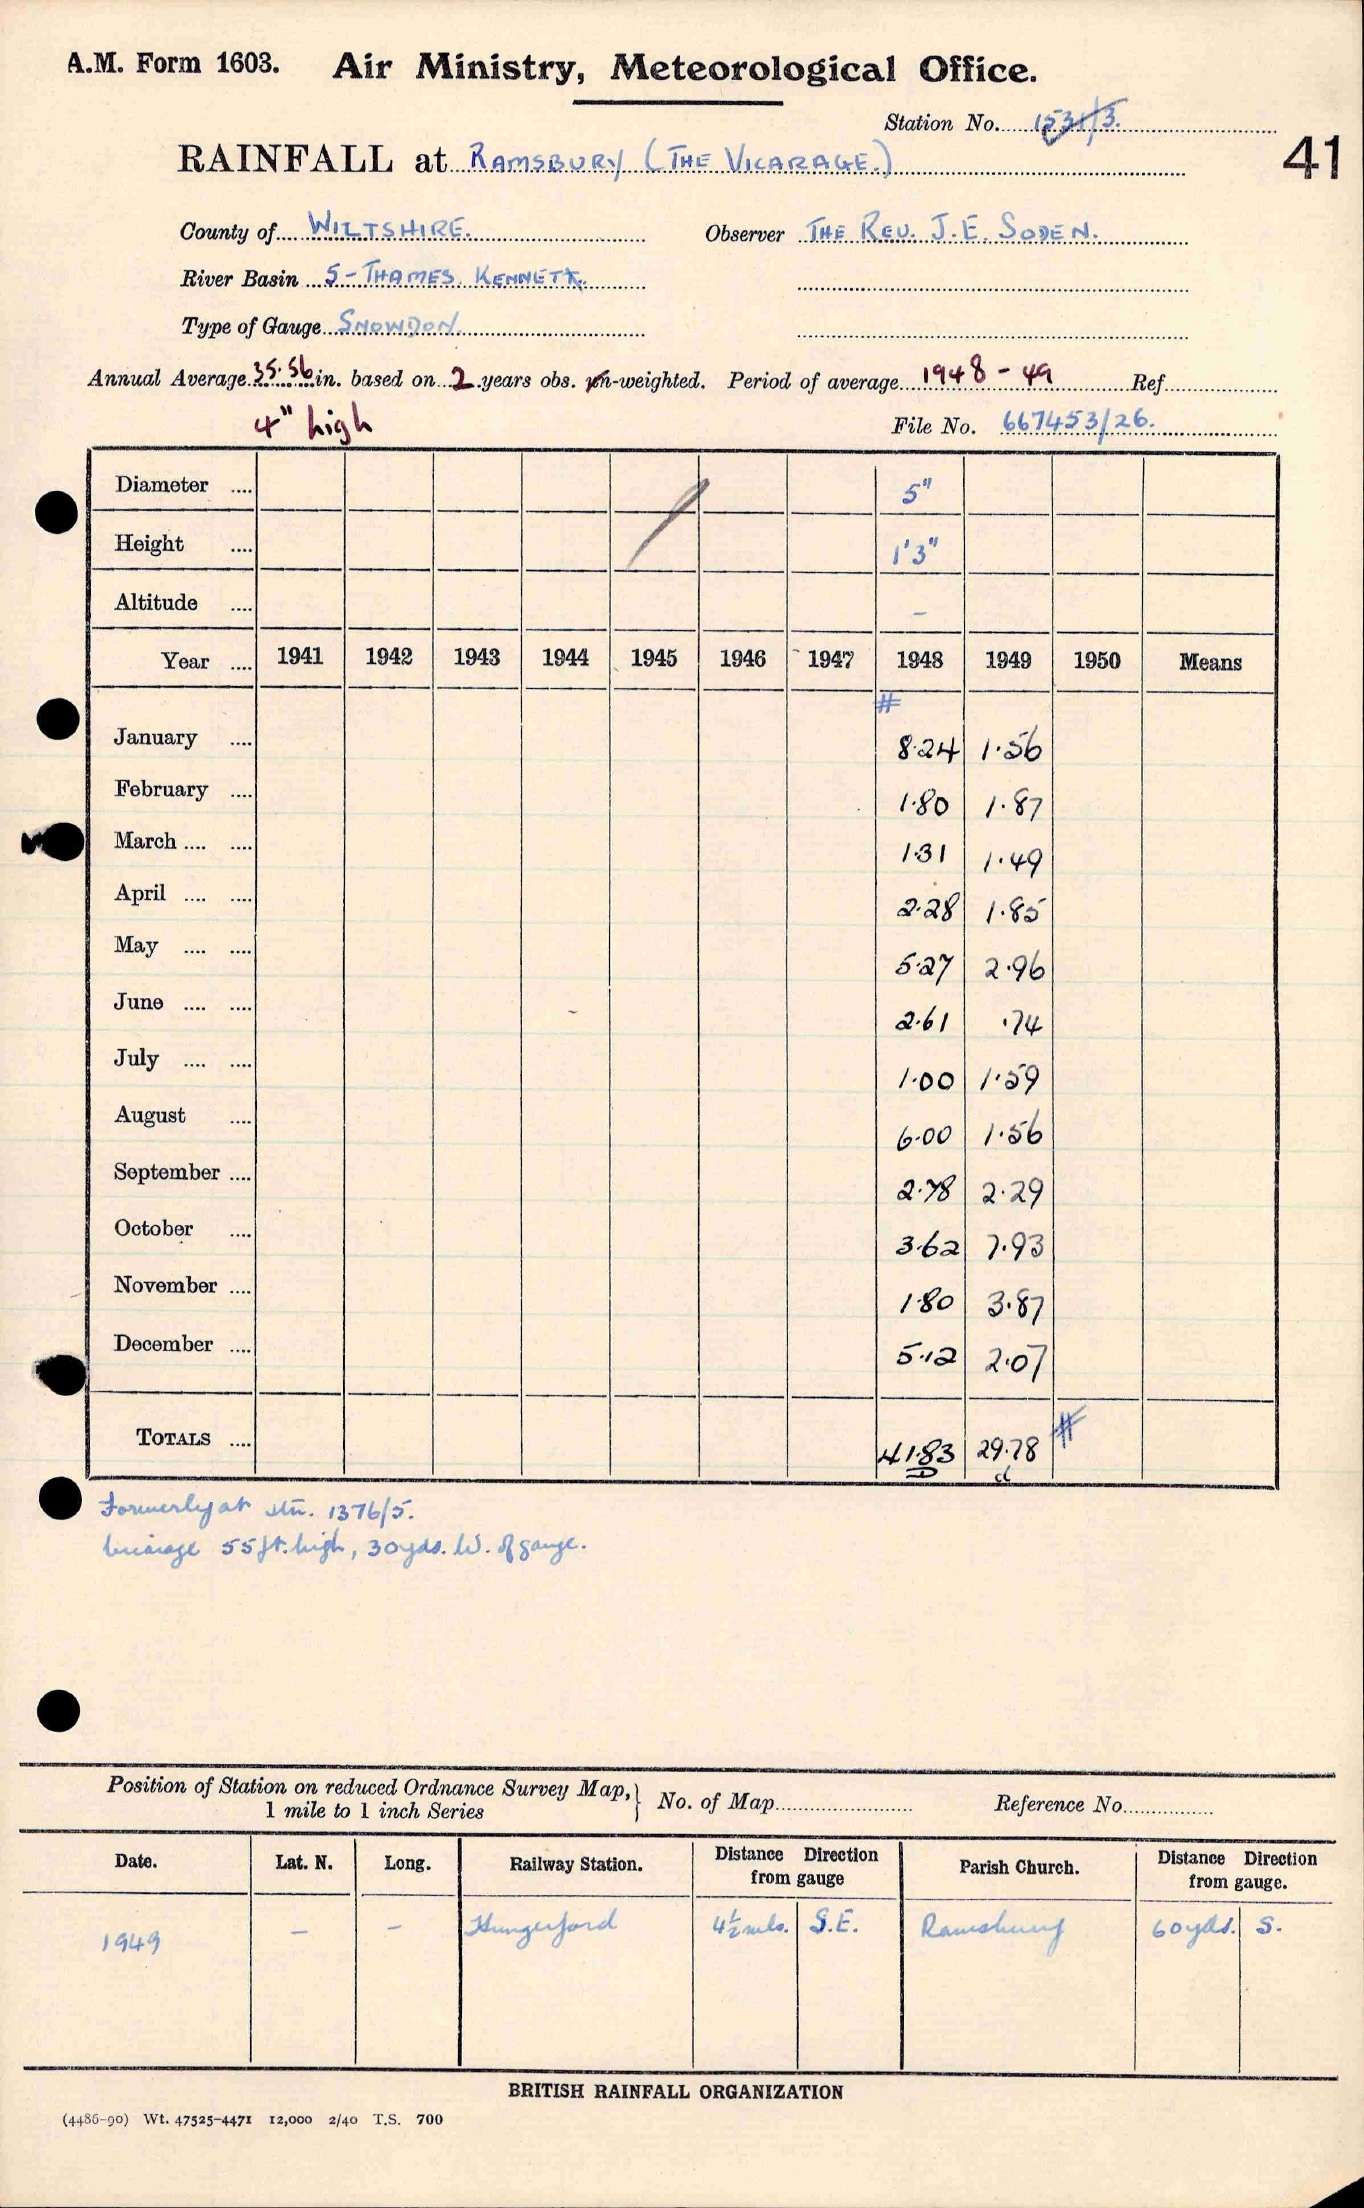 A.M. Form 1603. Air Ministry, Meteorological Office.
Station No. 1531/3.
41
RAINFALL at RAMSBURY (THE VICARAGE.)
County of WILTSHIRE. Observer THE REV. J.E. SODEN.
River Basin 5-THAMES. KENNETT.
Type of Gauge SNOWDON.
Annual Average 35.56 in. based on 2 years obs. un-weighted. Period of average 1948-49 Ref
4" high File No. 667453/26.
Diameter .... 5"
Height .... 1'3"
Altitude .... -
Year .... 1941 1942 1943 1944 1945 1946 1947 1948 1949 1950 Means
#
January .... 8.24 1.56
February .... 1.80 1.87
March .... .... 1.31 1.49
April .... .... 2.28 1.85
May .... .... 5.27 2.96
June .... .... 2.61 .74
July .... .... 1.00 1.59
August .... 6.00 1.56
September .... 2.78 2.29
October .... 3.62 7.93
November .... 1.80 3.87
December .... 5.12 2.07
TOTALS .... 41.83 29.78 #
D d
Formerly at stn. 1376/5.
55ft. high, 30yds. W. of gauge.
Position of Station on reduced Ordnance Survey Map, } No. of Map Reference No
1 mile to 1 inch Series
Date. Lat. N. Long. Railway Station. Distance from gauge Direction Parish Church. Distance from gauge. Direction
1949 - - Hungerford 4½ mls. S.E. Ramsbury 60yds. S.
BRITISH RAINFALL ORGANIZATION
(4486-90) Wt. 47525-4471 12,000 2/40 T.S. 700